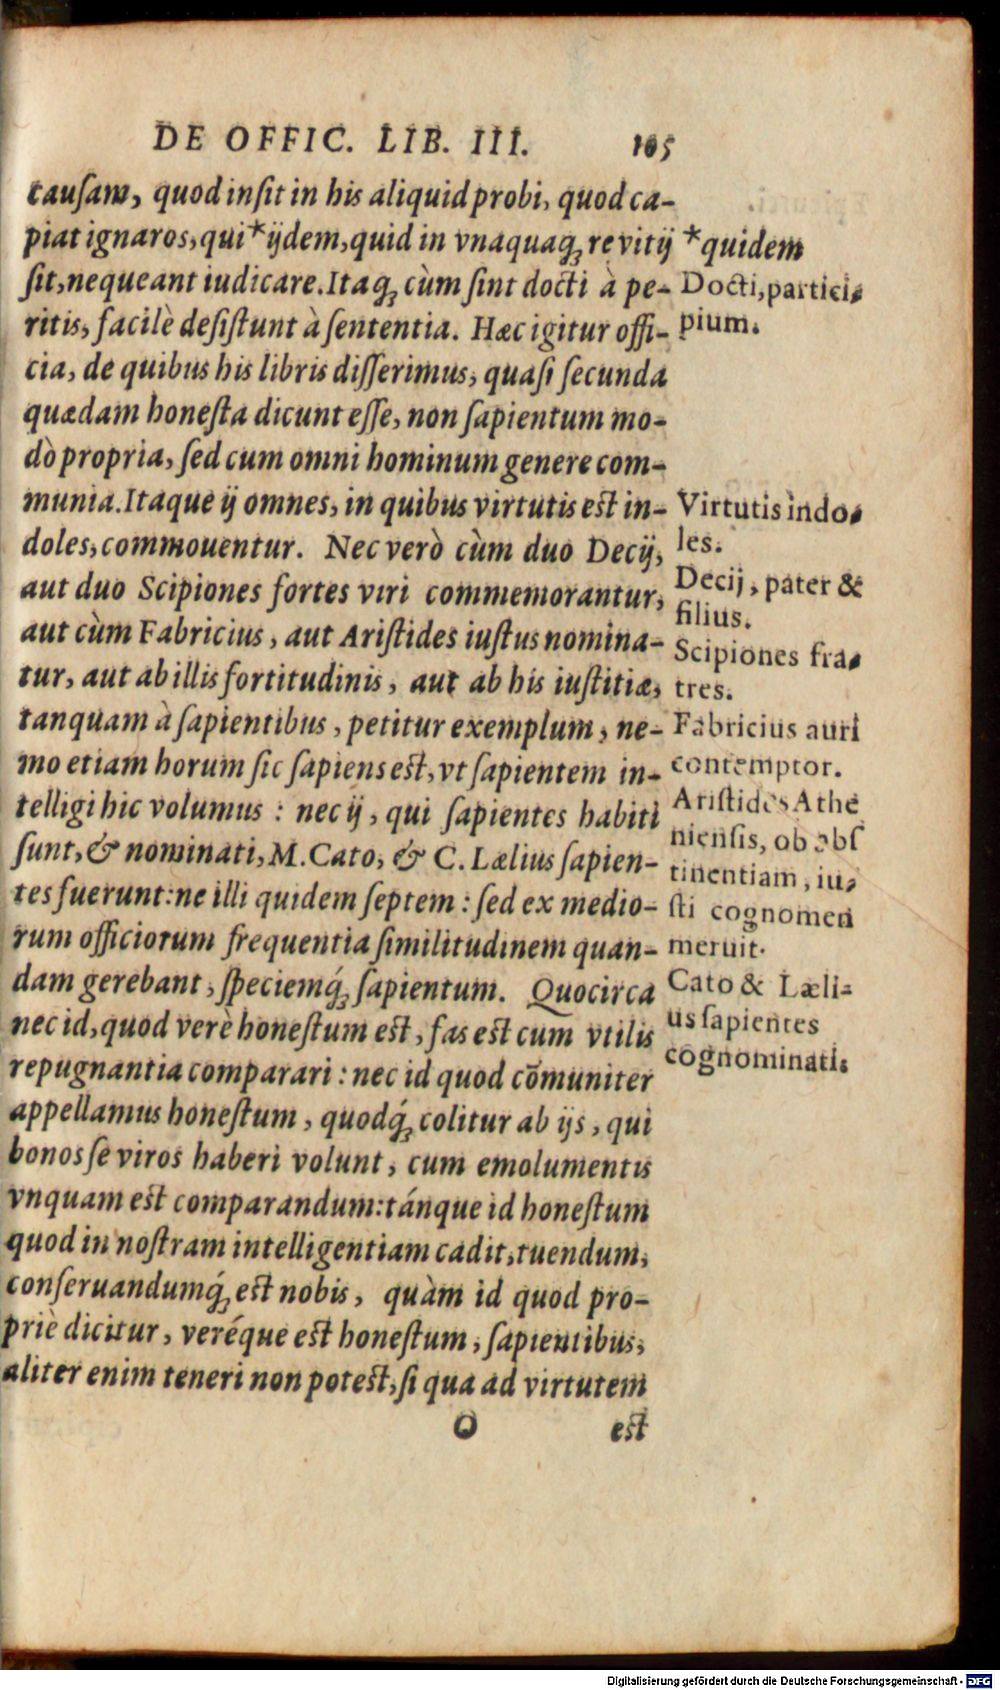 DE OFFIC. LIB. III. 105
cauſam, quod inſit in his aliquid probi, quod ca-
piat ignaros, qui *ijdem, quid in vnaquaq; re vitij
ſit, nequeant iudicare. Itaq; cùm ſint docti à pe-
ritis, facilè deſiſtunt à ſententia. Hæc igitur offi-
cia, de quibus his libris diſſerimus, quaſi ſecunda
quædam honeſta dicunt eſſe, non ſapientum mo-
dò propria, ſed cum omni hominum genere com-
munia. Itaque ij omnes, in quibus virtutis est in-
doles, commouentur. Nec verò cùm duo Decij,
aut duo Scipiones fortes viri commemorantur,
aut cùm Fabricius, aut Ariſtides iuſtus nomina-
tur, aut ab illis fortitudinis, aut ab his iuſtitiæ,
tanquam à ſapientibus, petitur exemplum, ne-
mo etiam horum ſic ſapiens est, vt ſapientem in-
telligi hic volumus : nec ij, qui ſapientes habiti
ſunt, & nominati, M. Cato, & C. Lælius ſapien-
tes fuerunt: ne illi quidem ſeptem : ſed ex medio-
rum officiorum frequentia ſimilitudinem quan-
dam gerebant, ſpeciemq́; ſapientum. Quocirca
nec id, quod verè honeſtum est, fas est cum vtilis
repugnantia comparari : nec id quod cōmuniter
appellamus honeſtum, quodq́; colitur ab ijs, qui
bonos ſe viros haberi volunt, cum emolumentis
vnquam est comparandum: tánque id honeſtum
quod in noſtram intelligentiam cadit, tuendum,
conſeruandumq́; est nobis, quàm id quod pro-
priè dicitur, veréque est honeſtum, ſapientibus,
aliter enim teneri non potest, ſi qua ad virtutem
O est
*quidem
Docti, partici-
pium.
Virtutis indo-
les.
Decij, pater &
filius.
Scipiones fra-
tres.
Fabricius auri
contemptor.
Ariſtides Athe
nienſis, ob abſ
tinentiam, iu-
ſti cognomen
meruit.
Cato & Læli-
us ſapientes
cognominati.
Digitalisierung gefördert durch die Deutsche Forschungsgemeinschaft - DFG